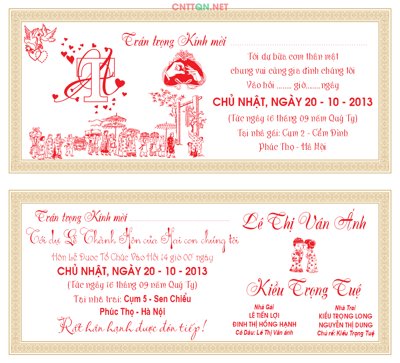 CNTTQN.NET
Trân trọng Kính mời
AT
Tới dự bữa cơm thân mật
chung vui cùng gia đình chúng tôi
Vào hồi ........ giờ........ ngày
CHỦ NHẬT, NGÀY 20 - 10 - 2013
(Tức ngày 16 tháng 09 năm Quý Tỵ)
Tại nhà gái: Cụm 2 - Cẩm Đình
Phúc Thọ - Hà Nội
Trân trọng Kính mời
Tới dự Lễ Thành Hôn của Hai con chúng tôi
Hôn Lễ Được Tổ Chức Vào Hồi 14 giờ 00' ngày
CHỦ NHẬT, NGÀY 20 - 10 - 2013
(Tức ngày 16 tháng 09 năm Quý Tỵ)
Tại nhà trai: Cụm 5 - Sen Chiểu
Phúc Thọ - Hà Nội
Rất hân hạnh được đón tiếp!
Lê Thị Vân Ánh
Kiều Trọng Tuệ
Nhà Gái
LÊ TIẾN LỢI
ĐINH THỊ HỒNG HẠNH
Cô Dâu: Lê Thị Vân ánh
Nhà Trai
KIỀU TRỌNG LONG
NGUYỄN THỊ DUNG
Chú rể: Kiều Trọng Tuệ